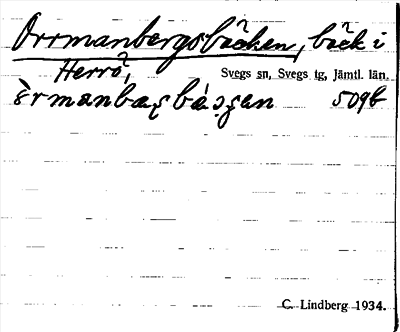 Orrmanbergsbäcken, bäck i
Herrö, Svegs sn, Svegs tg, Jämtl. län.
509b
C. Lindberg 1934.